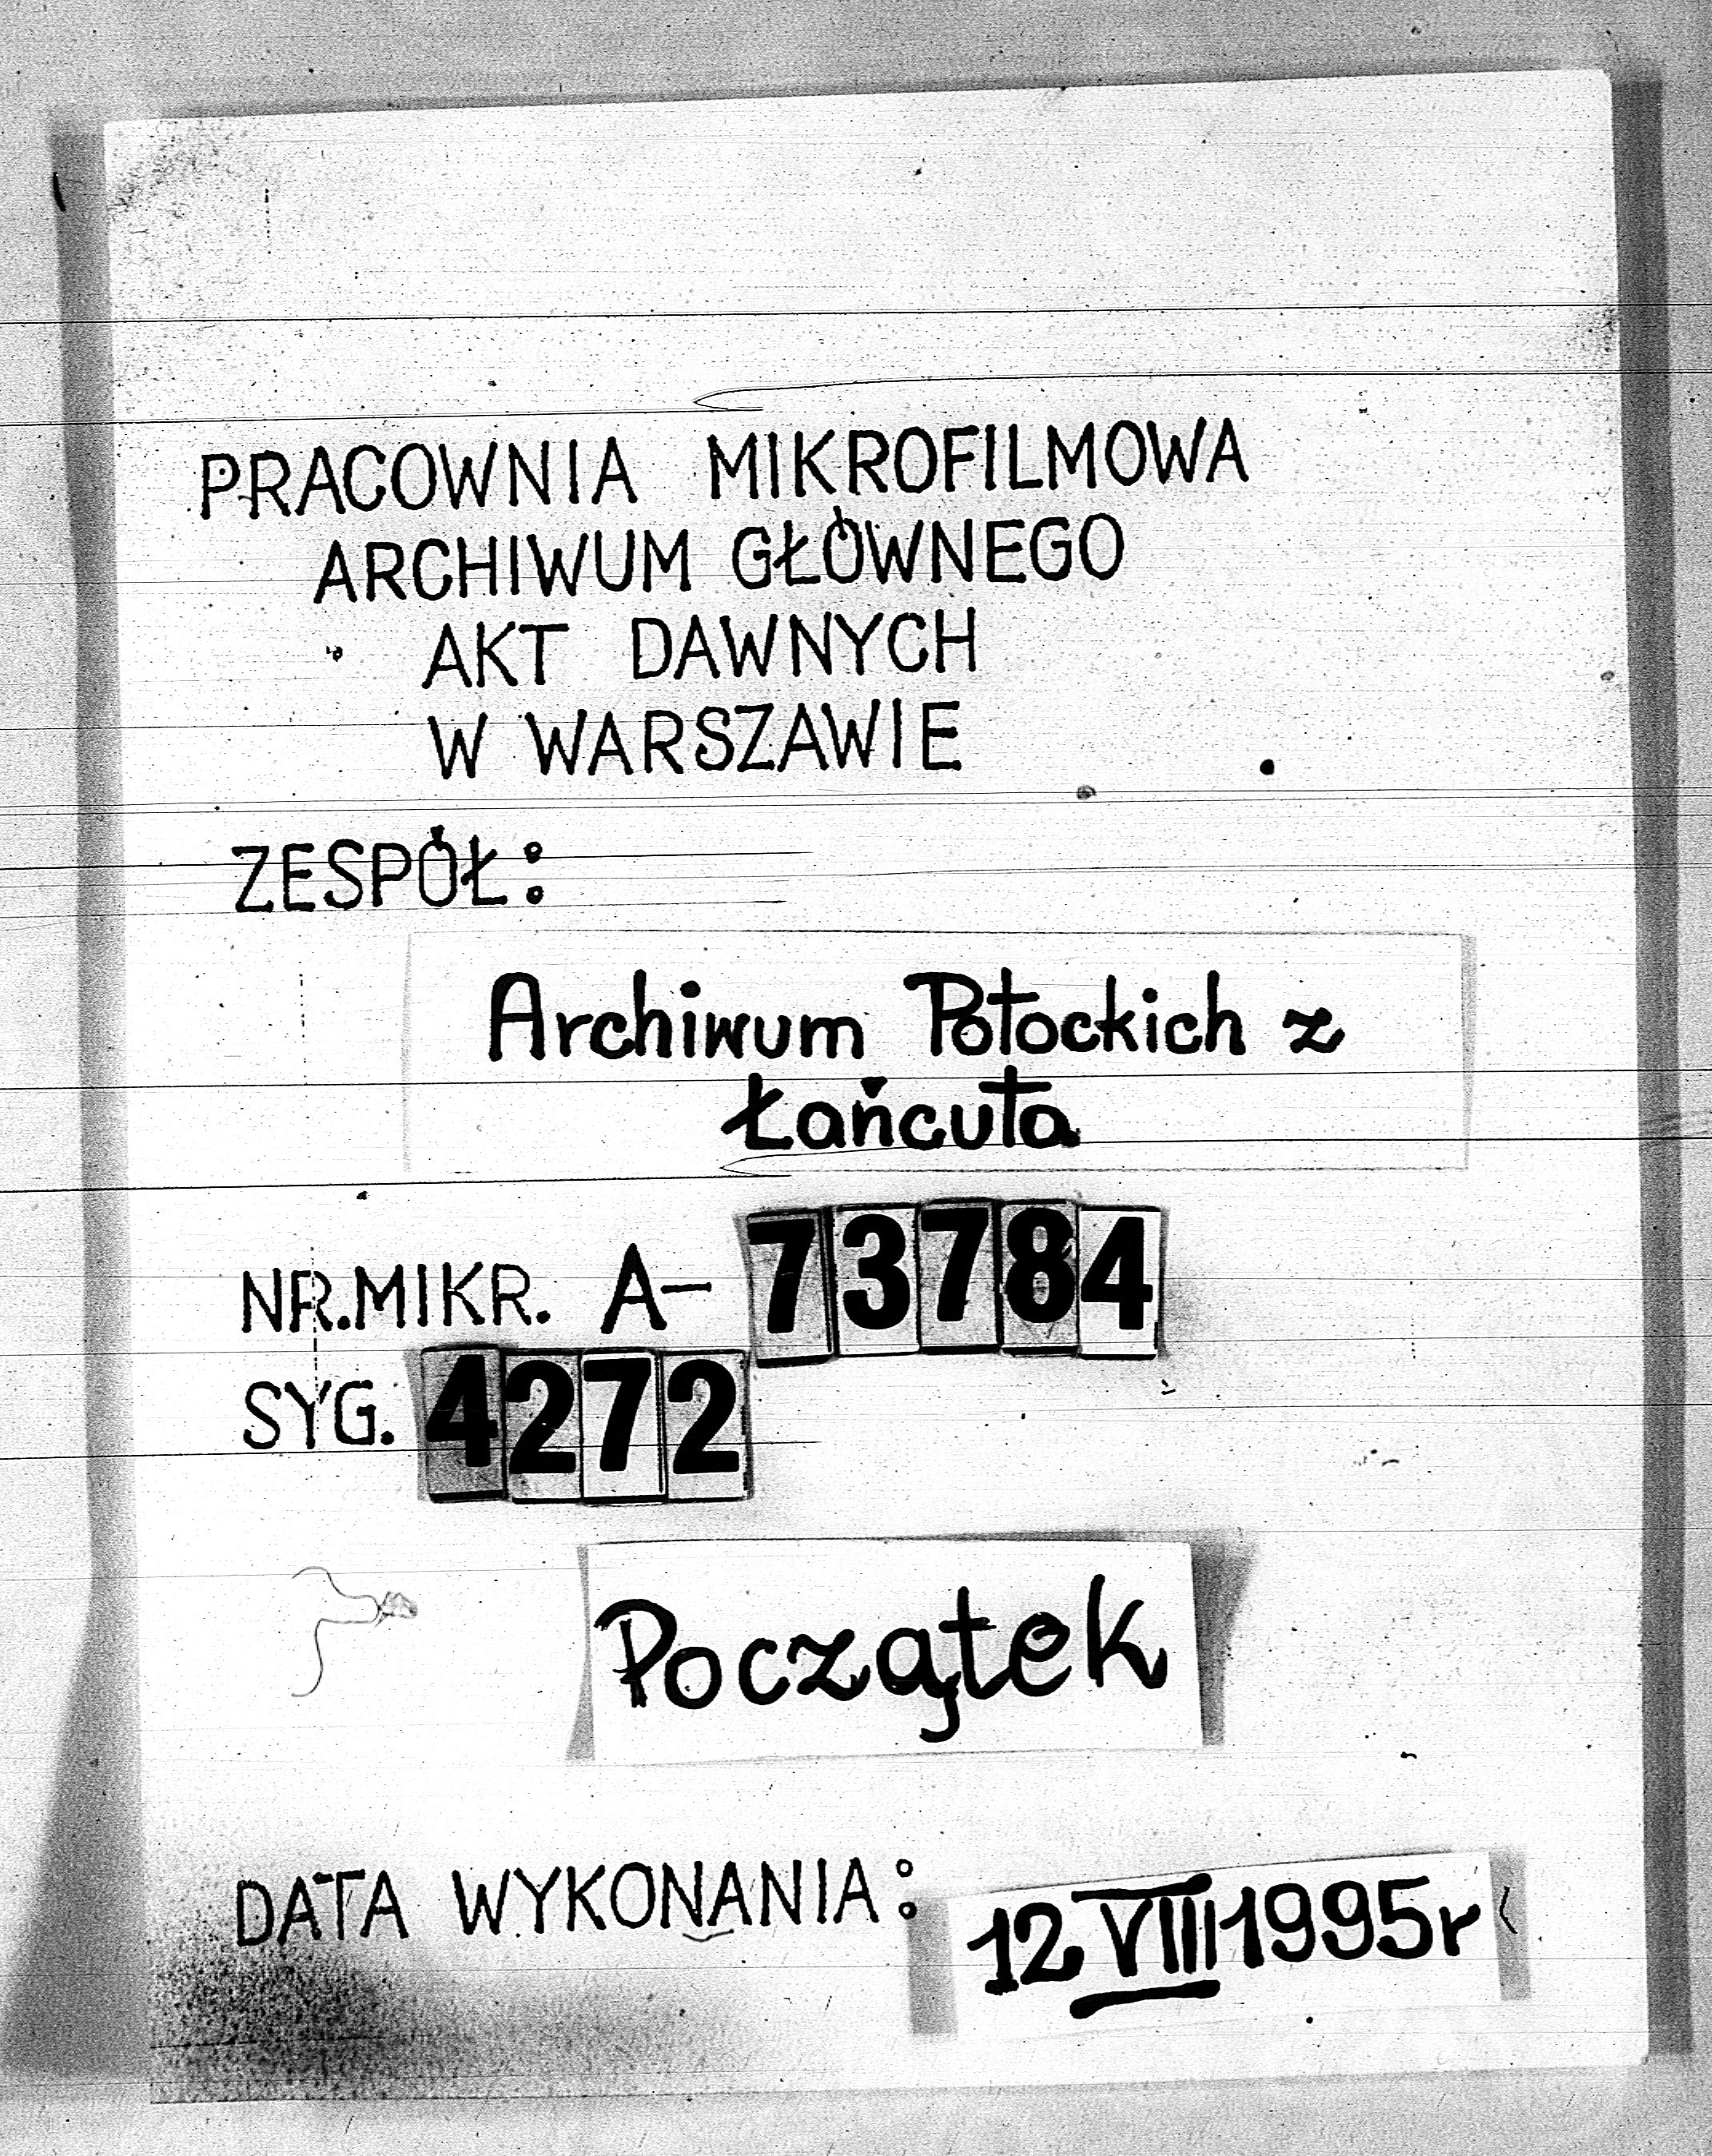 PRACOWNIA MIKROFILMOWA
ARCHIWUM GŁÓWNEGO
AKT DAWNYCH
W WARSZAWIE
ZESPÓŁ:
Archiwum Potockich z
Łańcuta
NR.MIKR. A- 73784
SYG. 4272
Początek
DATA WYKONANIA: 12 VIII 1995r